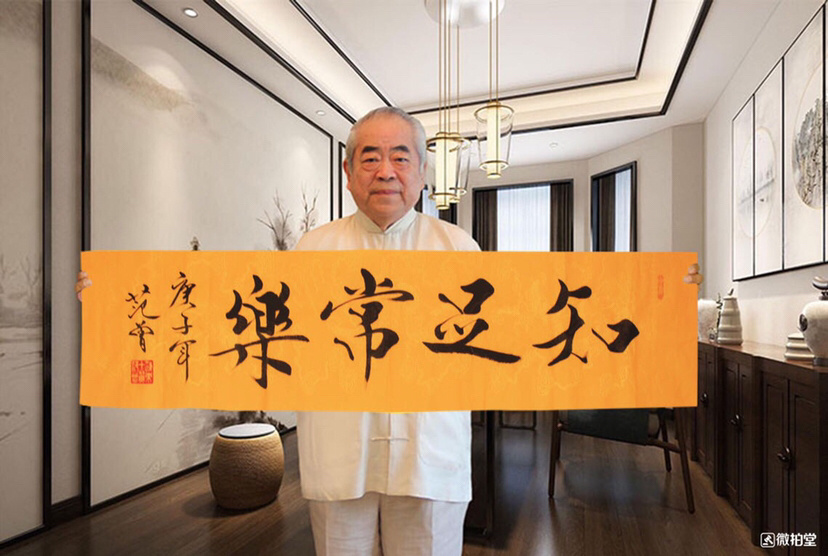 知足常樂
庚子年
范曾
微拍堂